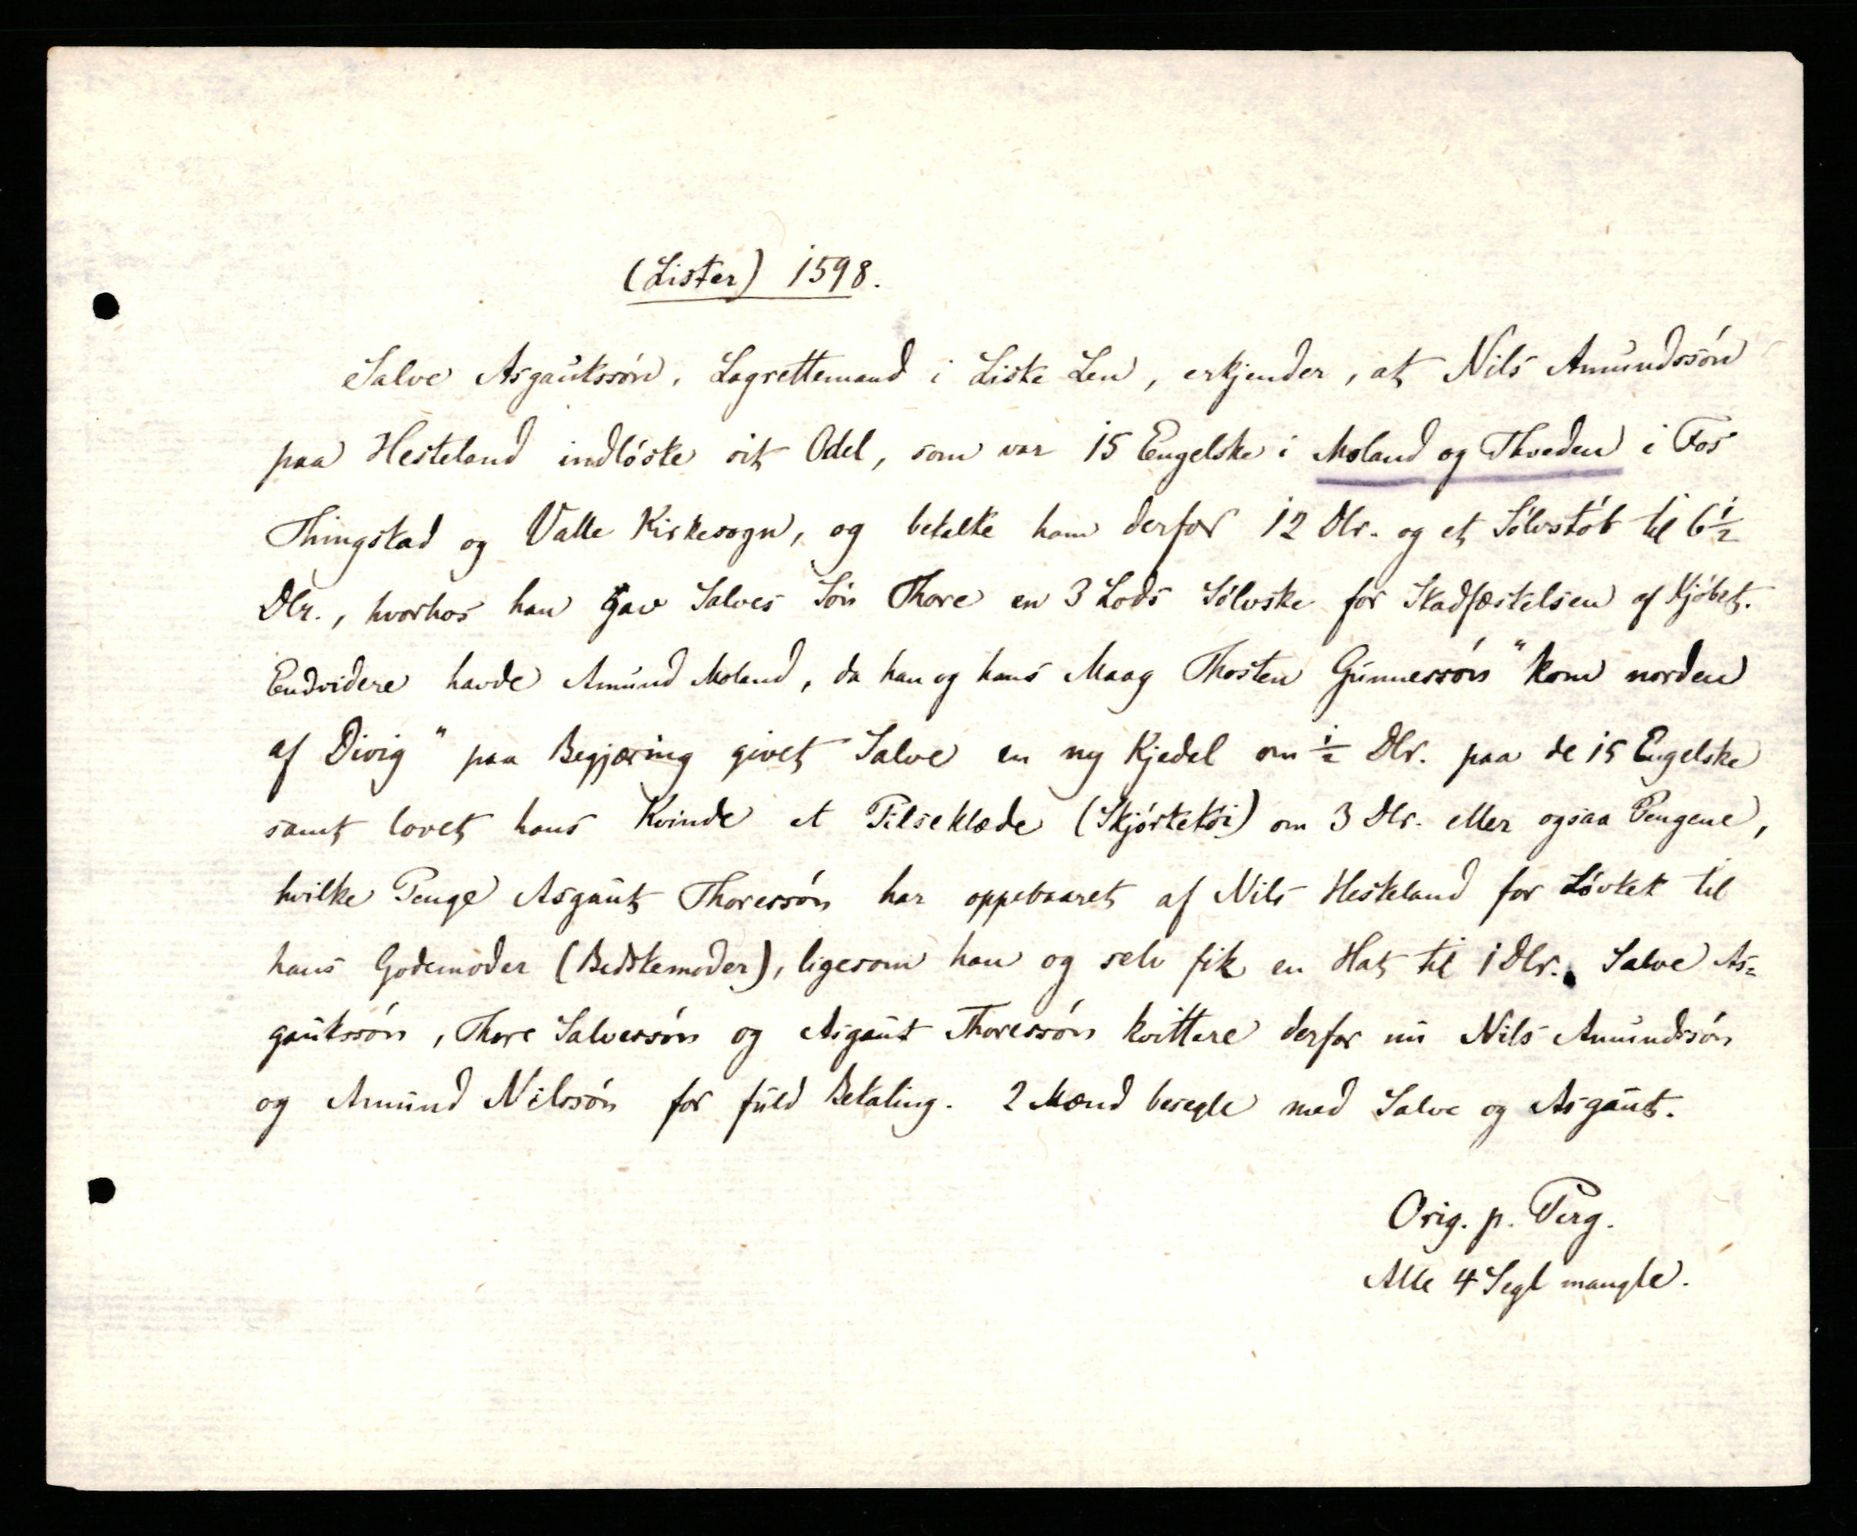 (Lister) 1598.
Salve Asgautssøn, Lagrettemand i Liste Len, erkjender, at Nils Amundssøn
paa Hesteland indløste sit Odel, som var 15 Engelske i Moland og Thveden i Fos
Thingstad og Valle Kirkesogn, og betalte ham derfor 12 Dlr. og et Sølvstøb til 6½
Dlr., hvorhos han gav Salves Søn Thore en 3 Lods Sølvske for Stadfæstelsen af Kjøbet.
Endvidere havde Amund Moland, da han og hans Maag Thosten Gunnerssøn "kom norden
af Divig" paa Begjæring givet Salve en ny Kjedel om ½ Dlr. paa de 15 Engelske
samt lovet hans Kvinde et Pilseklæde (Skjørtetøi) om 3 Dlr. eller ogsaa Pengene,
hvilke Penge Asgaut Thoressøn har oppebaaret af Nils Hesteland for Løvtet til
hans Godemoder (Bedstemoder), ligesom han og selv fik en Hat til 1 Dlr. Salve As=
gautssøn, Thore Salvessøn og Asgaut Thoressøn kvittere derfor nu Nils Amundssøn
og Amund Nilssøn for fuld Betaling. 2 Mænd besegle med Salve og Asgaut.
Orig. p. Perg.
Alle 4 Segl mangle.